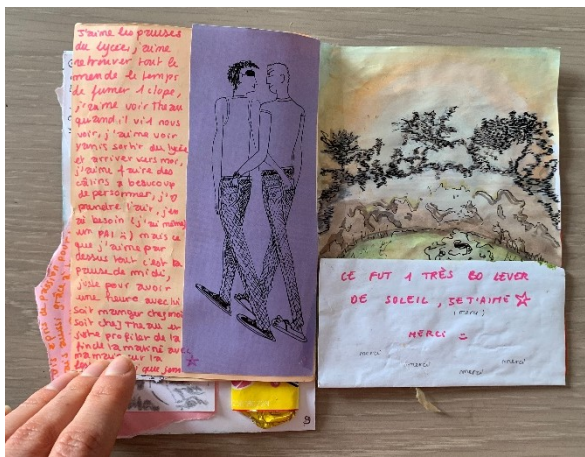 J'aime les pauses
du lycée, j'aime
retrouver tout le
monde le temps
de fumer 1 clope,
j'aime voir Theau
quand il vi1 nous
voir, j'aime voir
Yanis sortir du lycée
et arriver vers moi,
j'aime faire des
câlins a beaucoup
de personnes,
prendre l'air, j'en
ai besoin (j'ai même
un PAI ;) mais ce
que j'aime par
dessus tout c'est la
pause de midi,
juste pour avoir
une heure avec lui
soit manger chez moi
soit chez Theau et
profiter de la
fin de la matiné avec
maman sur la
CE FUT 1 TRÈS BO LEVER
DE SOLEIL, JE T'AIME ☆
MERCI
merci
merci
merci
merci
9